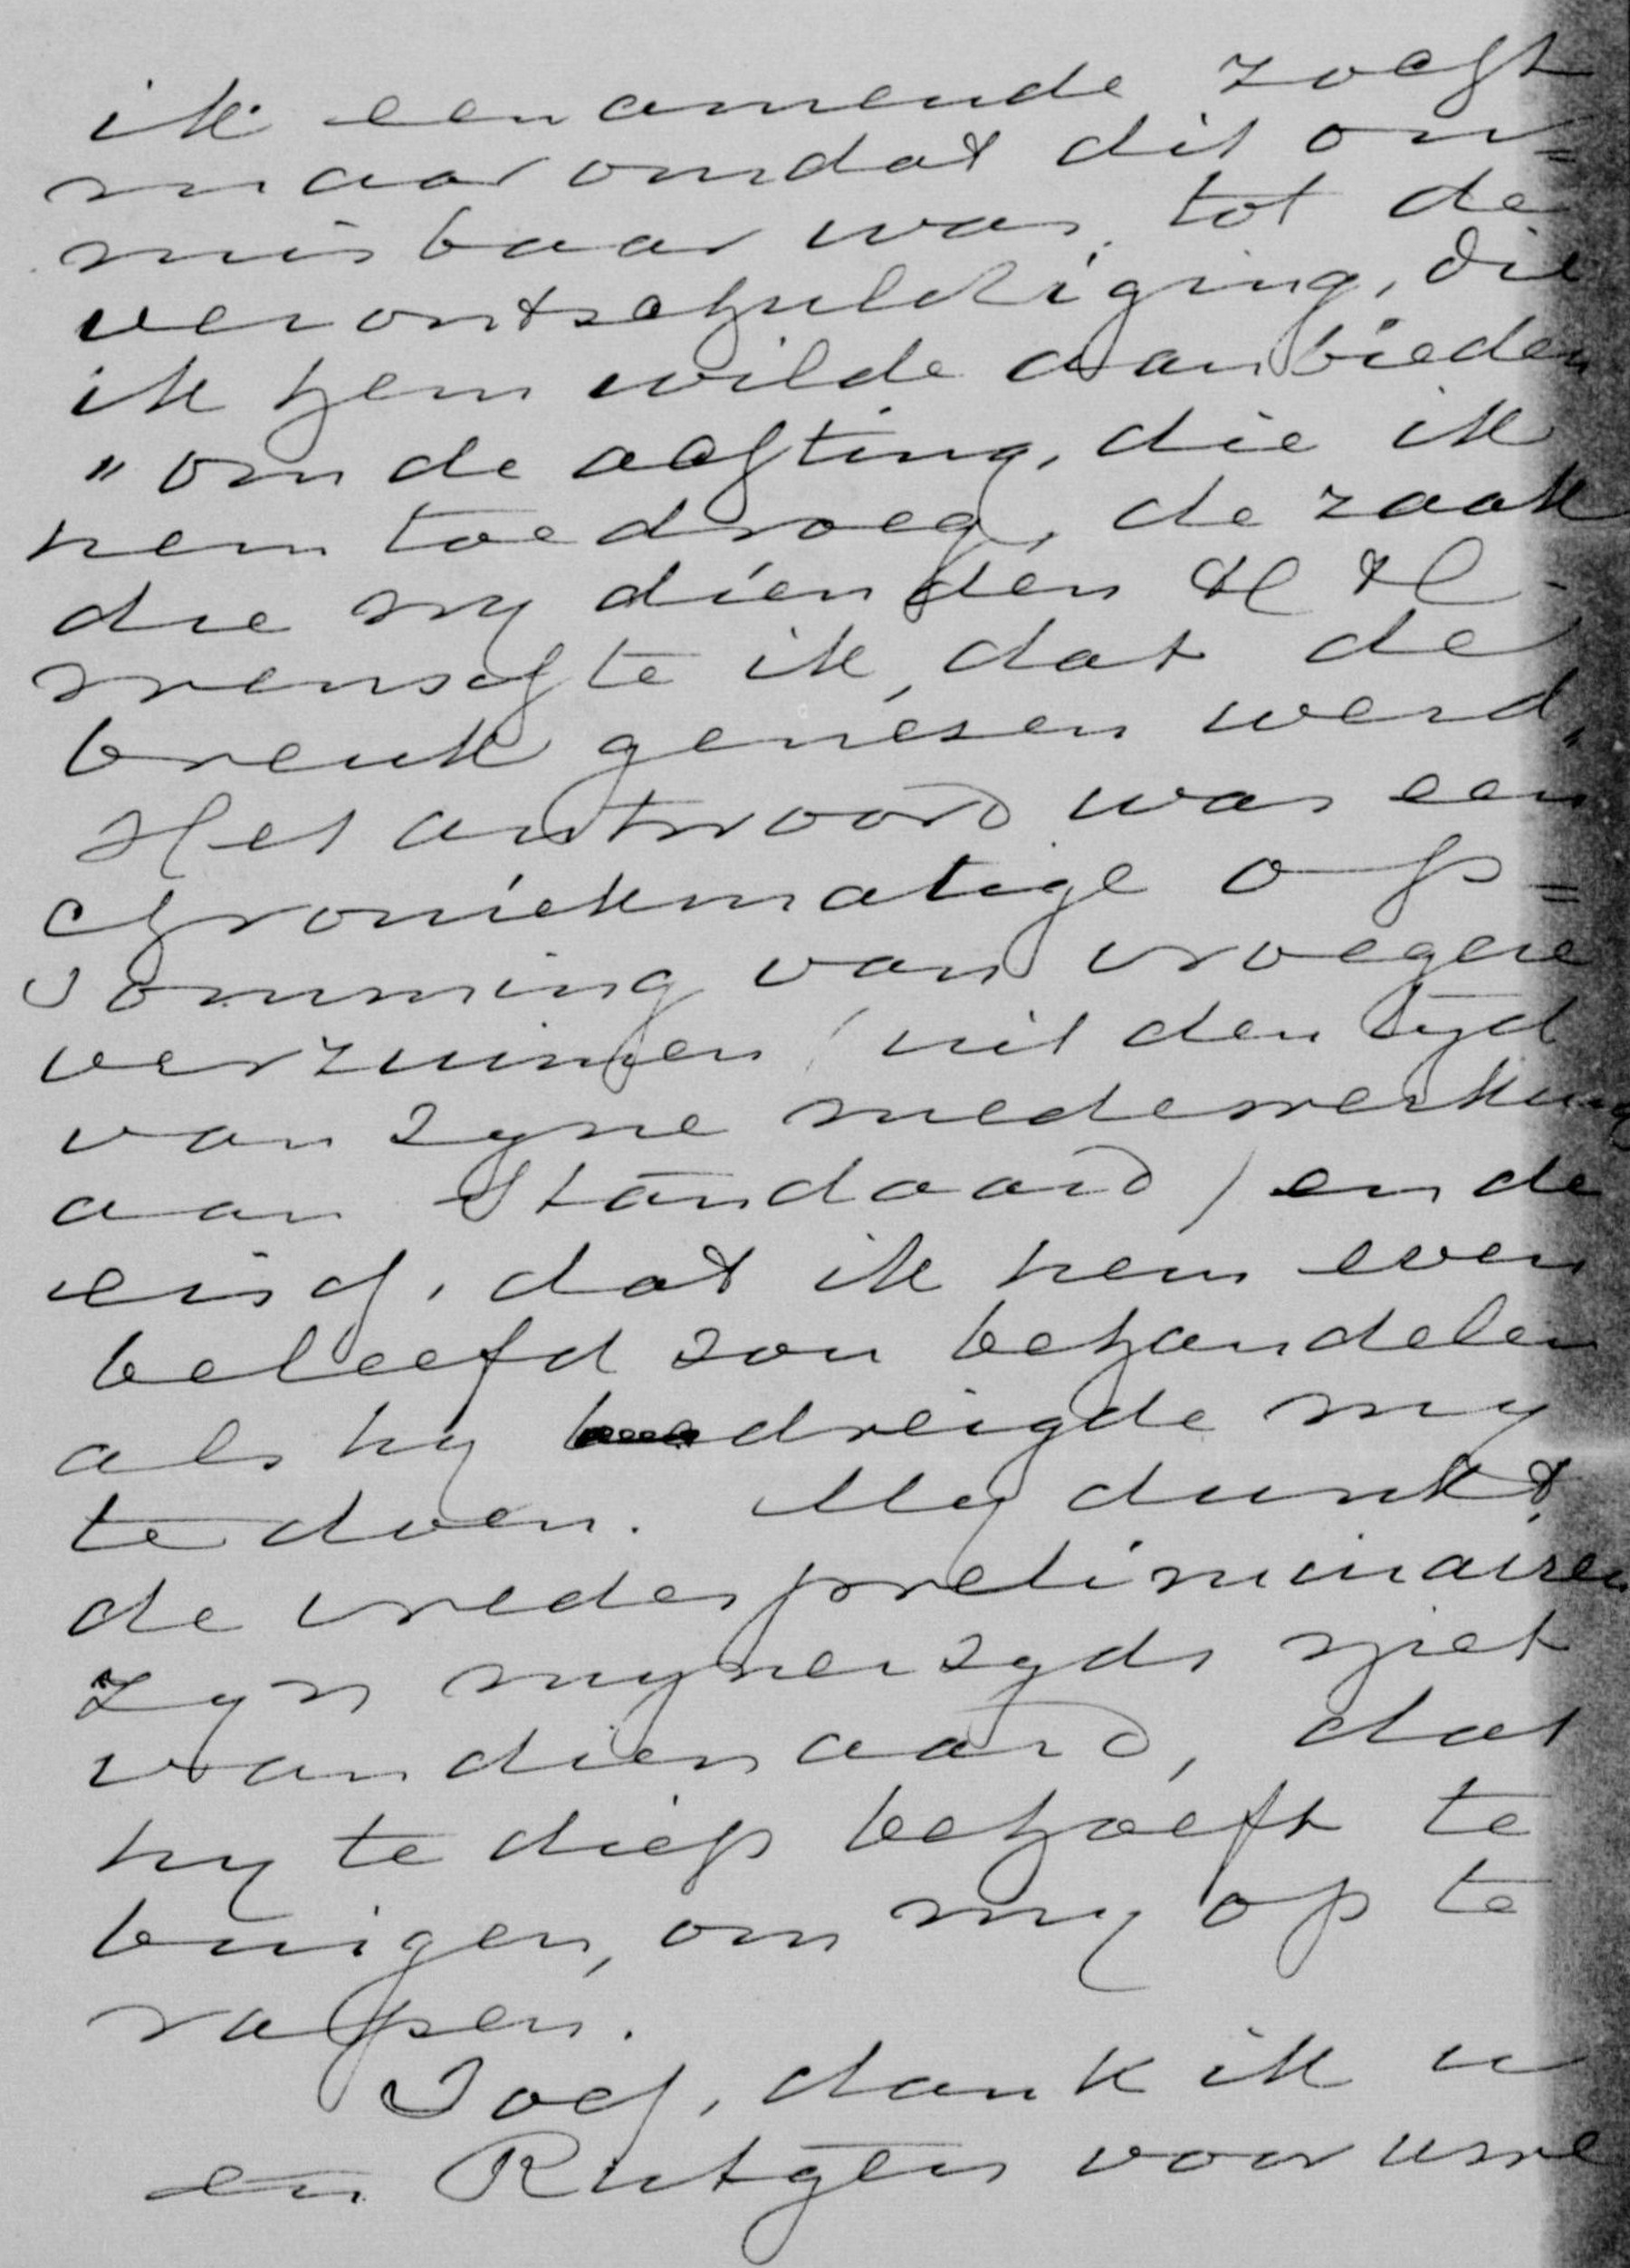 ik een amende zocht
maar omdat dit on=
misbaar was tot de
verontschuldiging, die
ik hem wilde aanbieden
"om de achting, die ik
hem toedroeg, de zaak
die wy dienden &c &c -
wenschte ik, dat de
breuk genezen werd,
Het antwoord was een
chroniekmatige op=
somming van vroegere
verzuimen (uit den tyd
van zyne medewerking
aan Standaard) en de
eisch, dat ik hem even
beleefd zou behandelen
als hy dreigde my
te doen. My dunkt,
de vredespreliminairen
zyn mynerzyds niet
van dien aard, dat
hy te diep behoeft te
buigen, om my op te
rapen.
Toch, dank ik u
en Rutgers voor uwe